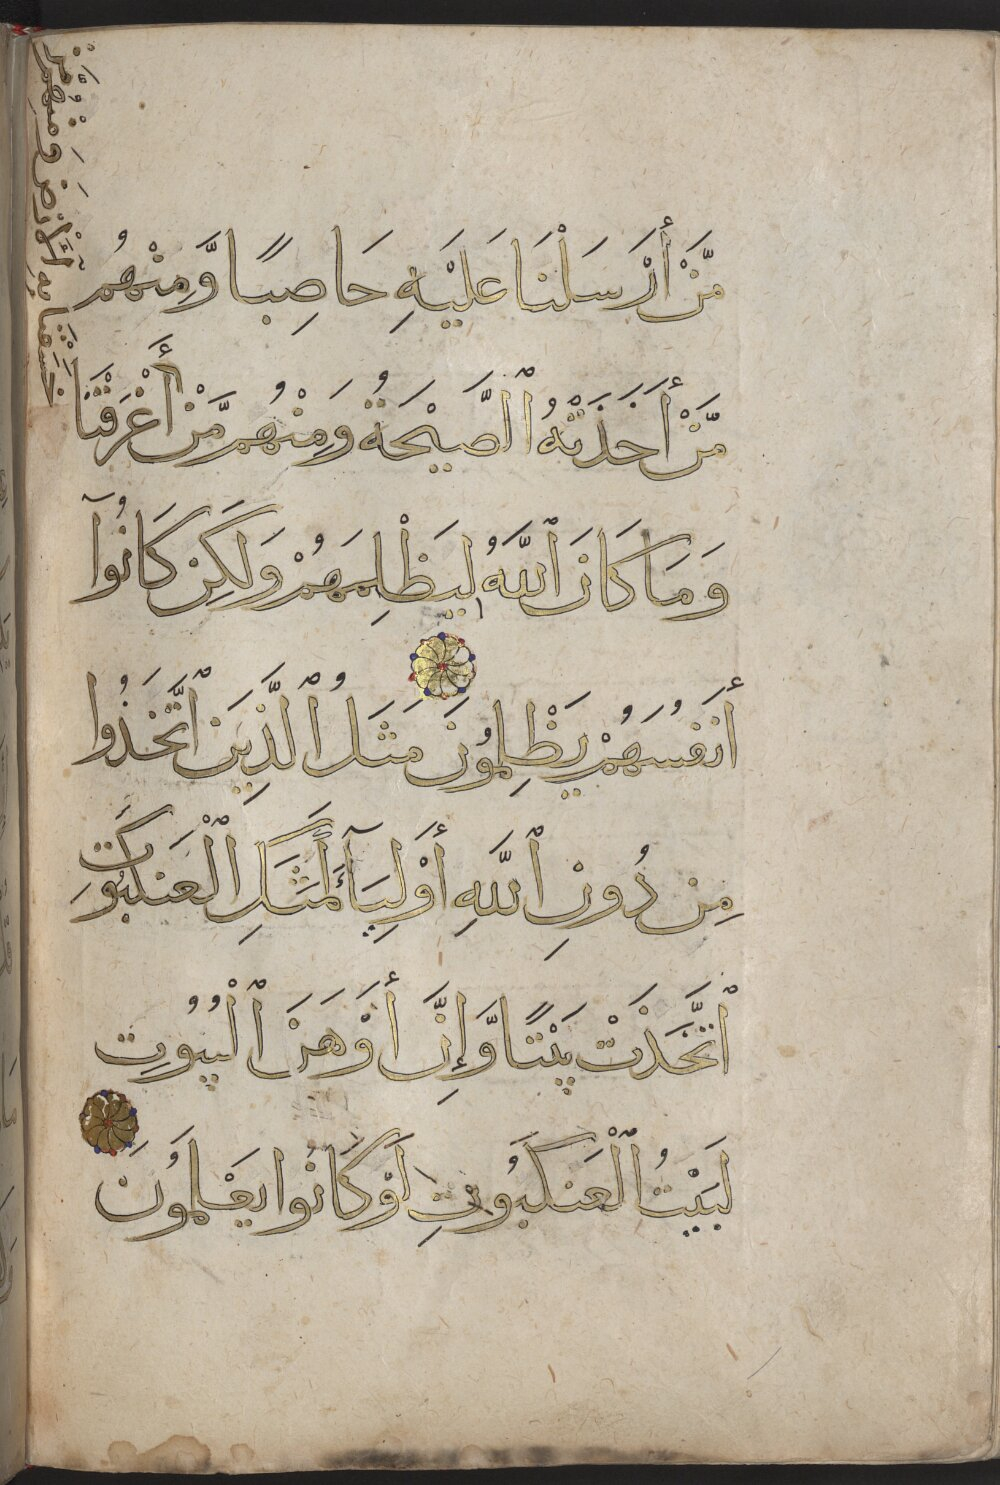 مَّنْ أَرْسَلْنَا عَلَيْهِ حَاصِبًا وَّمِنْهُم
مَّنْ أَخَذَتْهُ ٱلصَّيْحَةُ وَمِنْهُم مَّنْ أَغْرَقْنَا
وَمَا كَانَ ٱللَّهُ لِيَظْلِمَهُمْ وَلَٰكِن كَانُوٓا
أَنفُسَهُمْ يَظْلِمُونَ مَثَلُ ٱلَّذِينَ ٱتَّخَذُوا
مِن دُونِ ٱللَّهِ أَوْلِيَآءَ كَمَثَلِ ٱلْعَنكَبُوتِ
ٱتَّخَذَتْ بَيْتًا وَّإِنَّ أَوْهَنَ ٱلْبُيُوتِ
لَبَيْتُ ٱلْعَنكَبُوتِ لَوْ كَانُوا يَعْلَمُونَ
خَسَفْنَا بِهِ ٱلْأَرْضَ وَمِنْهُم مَّنْ